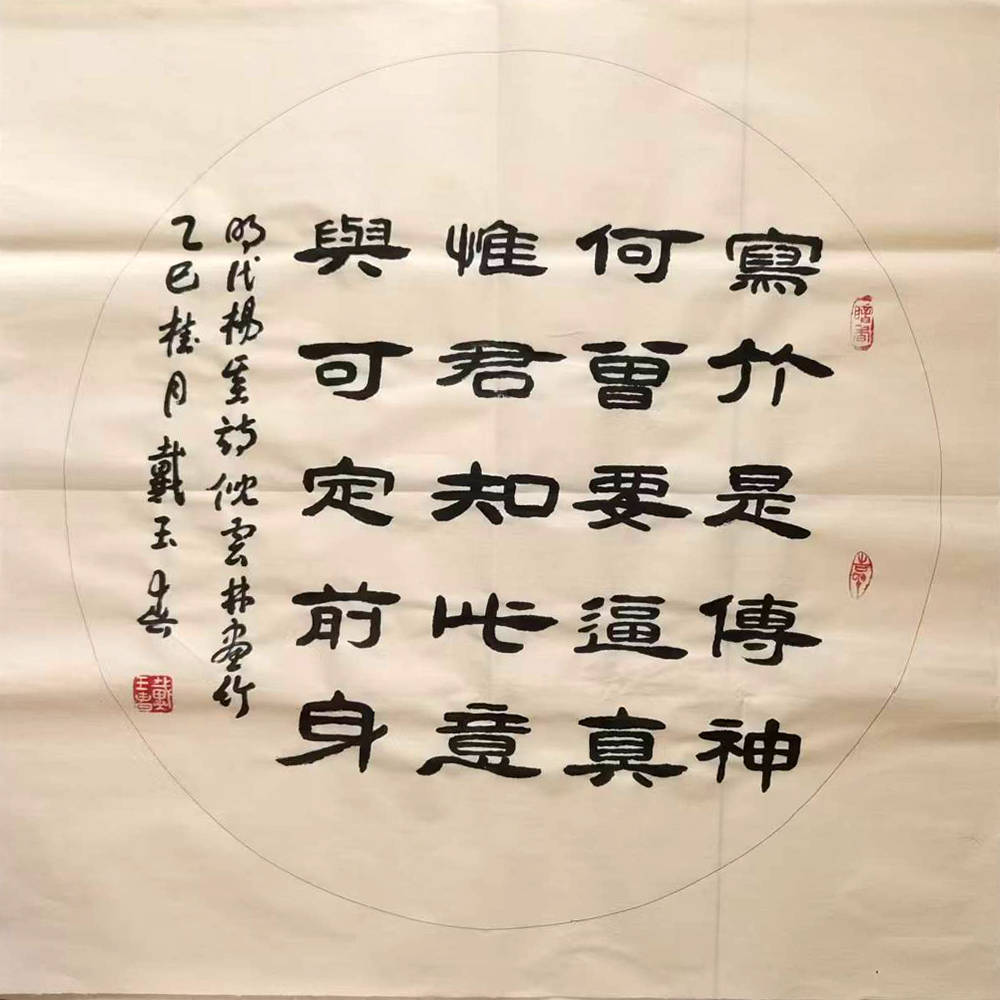 寫竹是傳神
何曾要逼真
惟君知此意
與可定前身
明代楊基詩倪雲林畫竹
乙巳桂月戴玉春